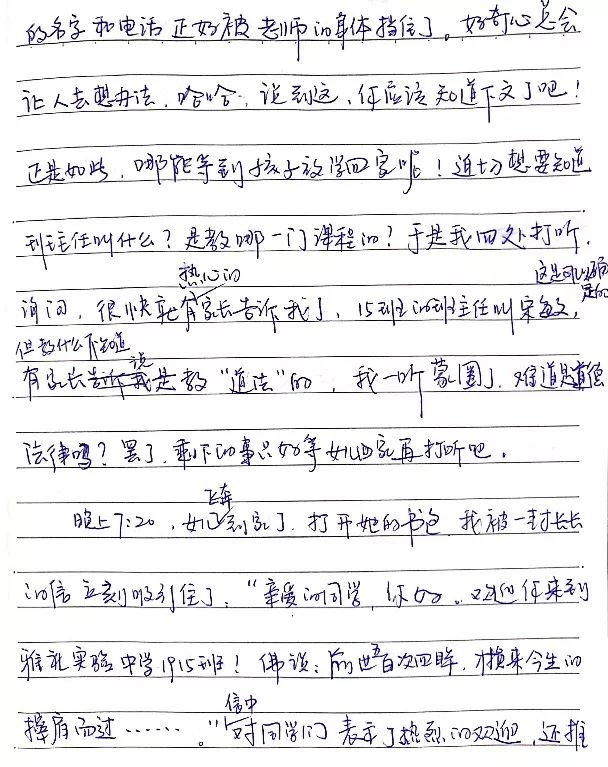 的名字和电话正好被老师的身体挡住了。好奇心总会
让人去想办法，哈哈，说到这，你应该知道下文了吧！
正是如此，哪能等到孩子放学回家呢！迫切想要知道
班主任叫什么？是教哪一门课程的？于是我四处打听，
热心的
这是可以确定的
询问，很快就有家长告诉我了，15班的班主任叫宋敏文，
但教什么不知道
说
有家长告诉我是教“道法”的，我一听蒙圈了，难道是道德
法律吗？罢了，剩下的事只好等女儿回家再打听吧。
飞奔
晚上7:20，女儿到家了，打开她的书包，我被一封长长
的信立刻吸引住了，“亲爱的同学，你好。欢迎你来到
雅礼实验中学1915班！佛说：前世五百次回眸，才换来今生的
信中
擦肩而过……。”对同学们表示了热烈的欢迎，还推